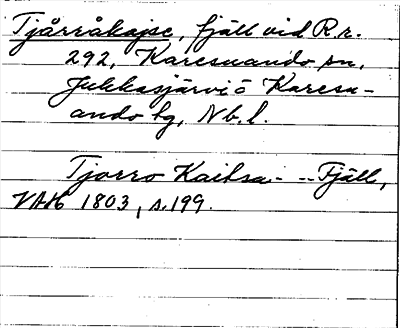 Tjårråkajse, fjäll vid R.r.
292, Karesuando sn,
Jukkasjärvi o Karesu-
ando tg, Nb. l.
Tjorro Kaitsa - -- Fjäll,
VAH 1803, s. 199.